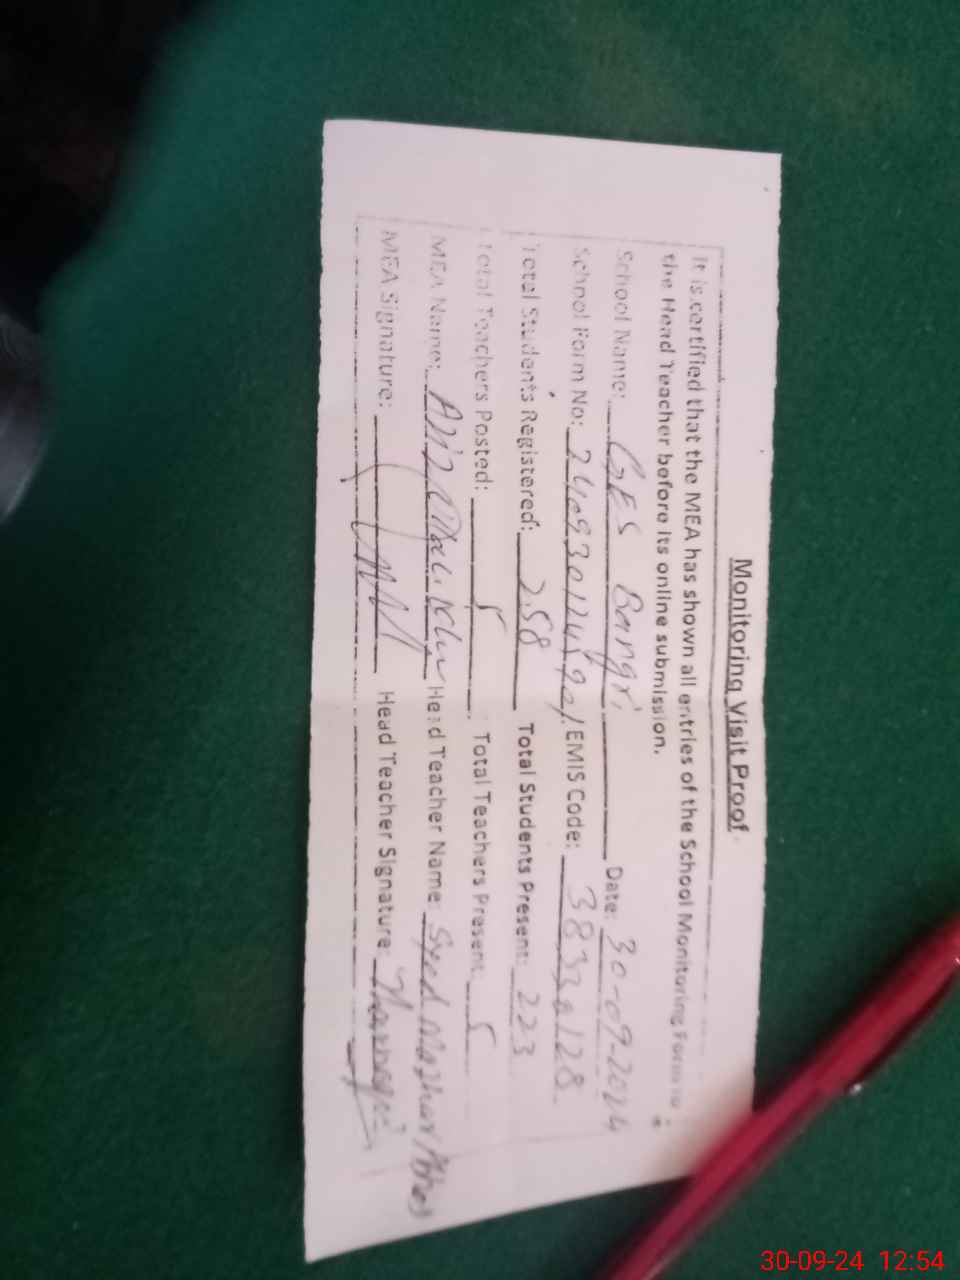 Monitoring Visit Proof
It is certified that the MEA has shown all entries of the School Monitoring Form to
the Head Teacher before its online submission.
School Name: GES Bangri Date: 30-09-2024
School Form No: EMIS Code: 38330128
Total Students Registered: 258 Total Students Present: 223
Total Teachers Posted: 5 Total Teachers Present 5
MEA Name: Head Teacher Name: Syed Mazhar Abbas
MEA Signature: Head Teacher Signature:
30-09-24 12:54